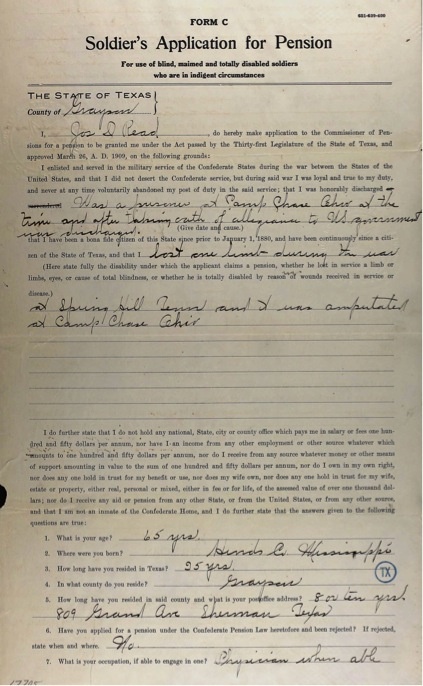 FORM C
Soldier's Application for Pension
For use of blind, maimed and totally disabled soldiers
who are in indigent circumstances
THE STATE OF TEXAS
County of Grayson
I, Jos D Read, do hereby make application to the Commissioner of Pen-
sions for a pension to be granted me under the Act passed by the Thirty-first Legislature of the State of Texas, and
approved March 26, A. D. 1909, on the following grounds:
I enlisted and served in the military service of the Confederate States during the war between the States of the
United States, and that I did not desert the Confederate service, but during said war I was loyal and true to my duty,
and never at any time voluntarily abandoned my post of duty in the said service; that I was honorably discharged
Was a prisoner at Camp Chase Ohio at the
time and after taking oath of allegiance to US government
was discharged. (Give date and cause.)
that I have been a bona fide citizen of this State since prior to January 1, 1880, and have been continuously since a citi-
zen of the State of Texas, and that I lost one limb during the war
(Here state fully the disability under which the applicant claims a pension, whether he lost in service a limb or
limbs, eyes, or cause of total blindness, or whether he is totally disabled by reason of wounds received in service or
disease.)
at Spring Hill Tenn and I was amputated
at Camp Chase Ohio
I do further state that I do not hold any national, State, city or county office which pays me in salary or fees one hun-
dred and fifty dollars per annum, nor have I an income from any other employment or other source whatever which
amounts to one hundred and fifty dollars per annum, nor do I receive from any source whatever money or other means
of support amounting in value to the sum of one hundred and fifty dollars per annum, nor do I own in my own right,
nor does any one hold in trust for my benefit or use, nor does my wife own, nor does any one hold in trust for my wife,
estate or property, either real, personal or mixed, either in fee or for life, of the assessed value of over one thousand dol-
lars; nor do I receive any aid or pension from any other State, or from the United States, or from any other source,
and that I am not an inmate of the Confederate Home, and I do further state that the answers given to the following
questions are true:
1. What is your age? 65 yrs.
2. Where were you born? Hinds Co. Mississippi
3. How long have you resided in Texas? 35 yrs.
TX
4. In what county do you reside? Grayson
5. How long have you resided in said county and what is your postoffice address? 8 or ten yrs.
809 Grand Ave Sherman Texas
6. Have you applied for a pension under the Confederate Pension Law heretofore and been rejected? If rejected,
state when and where. No.
7. What is your occupation, if able to engage in one? Physician when able